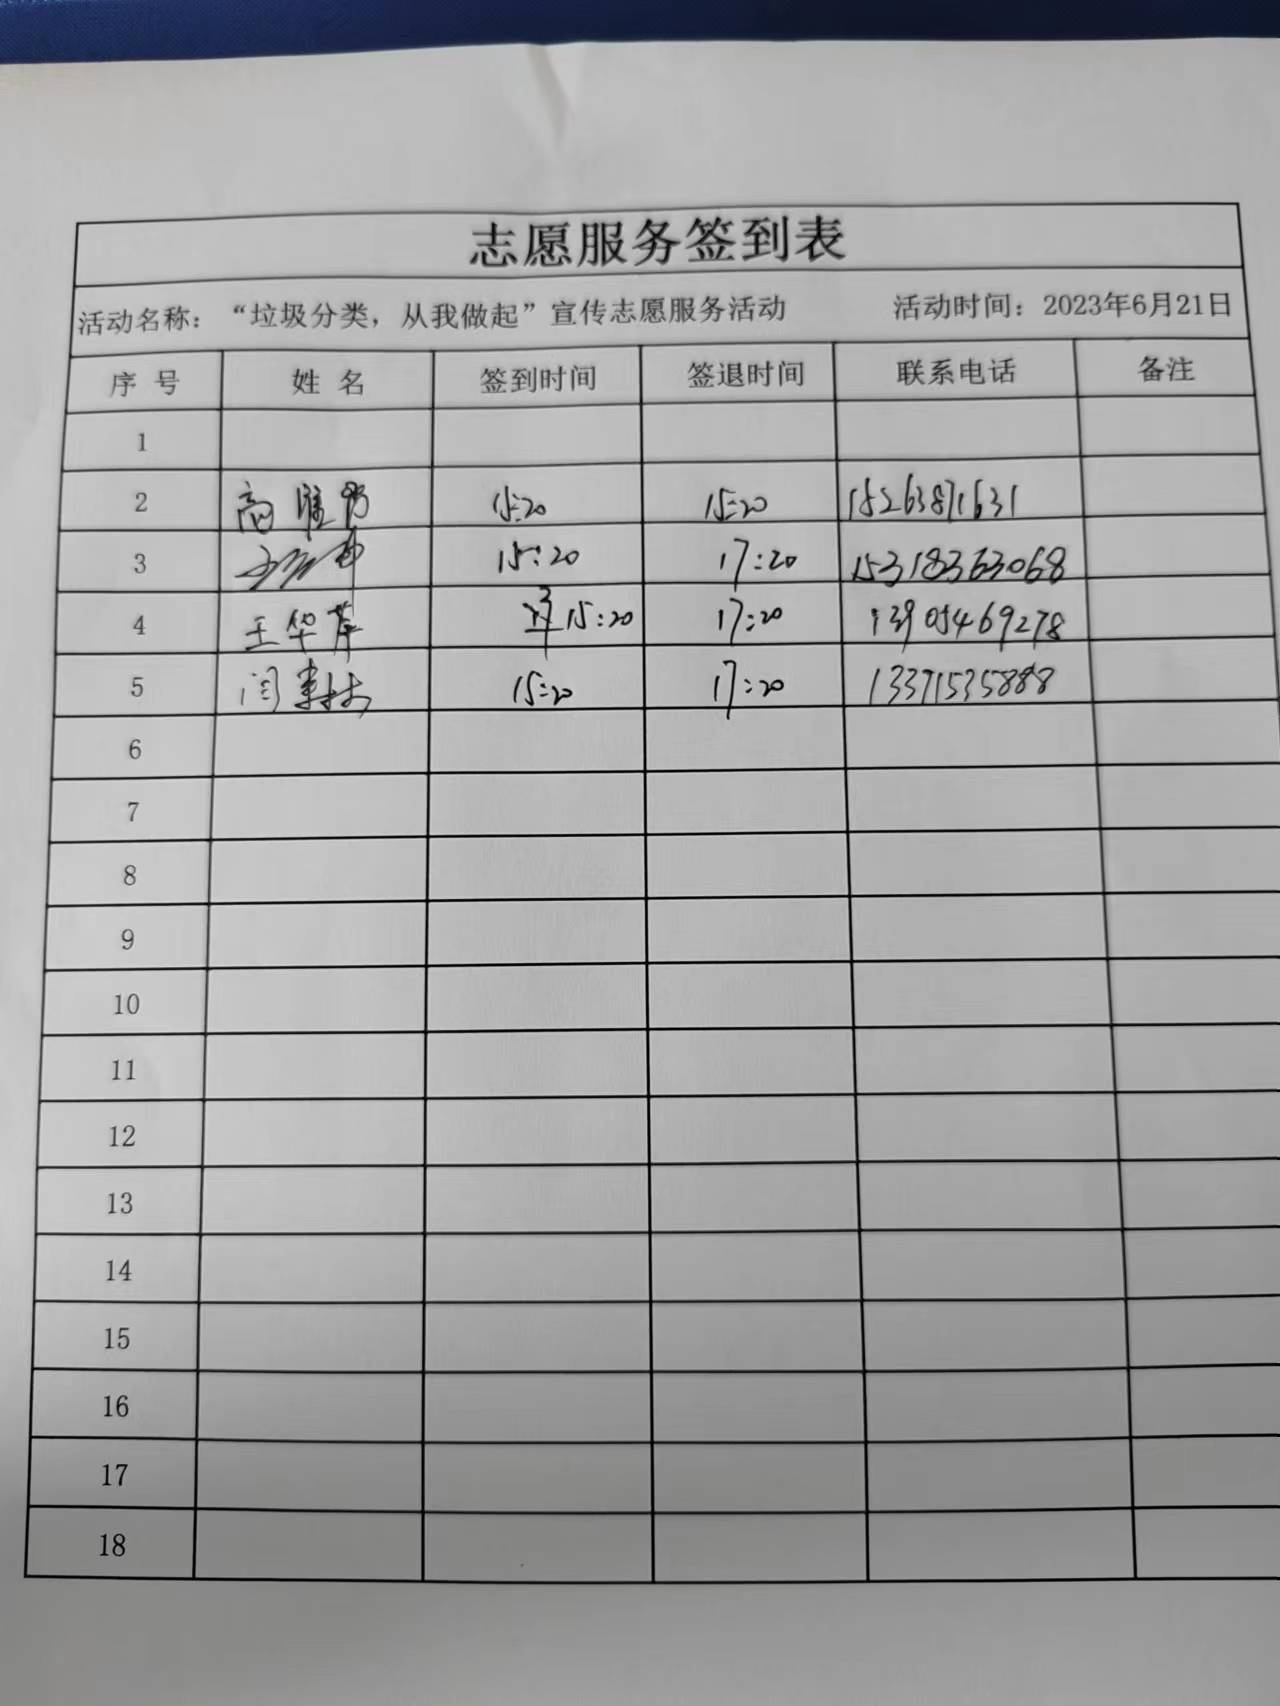 志愿服务签到表
活动名称：“垃圾分类，从我做起”宣传志愿服务活动 活动时间：2023年6月21日
序号 姓名 签到时间 签退时间 联系电话 备注
1
2 高 15:20 15:20 15263871631
3 15:20 17:20 15318363068
4 王华萍 15:20 17:20 13905469278
5 闫 林 15:20 17:20 13371535888
6
7
8
9
10
11
12
13
14
15
16
17
18